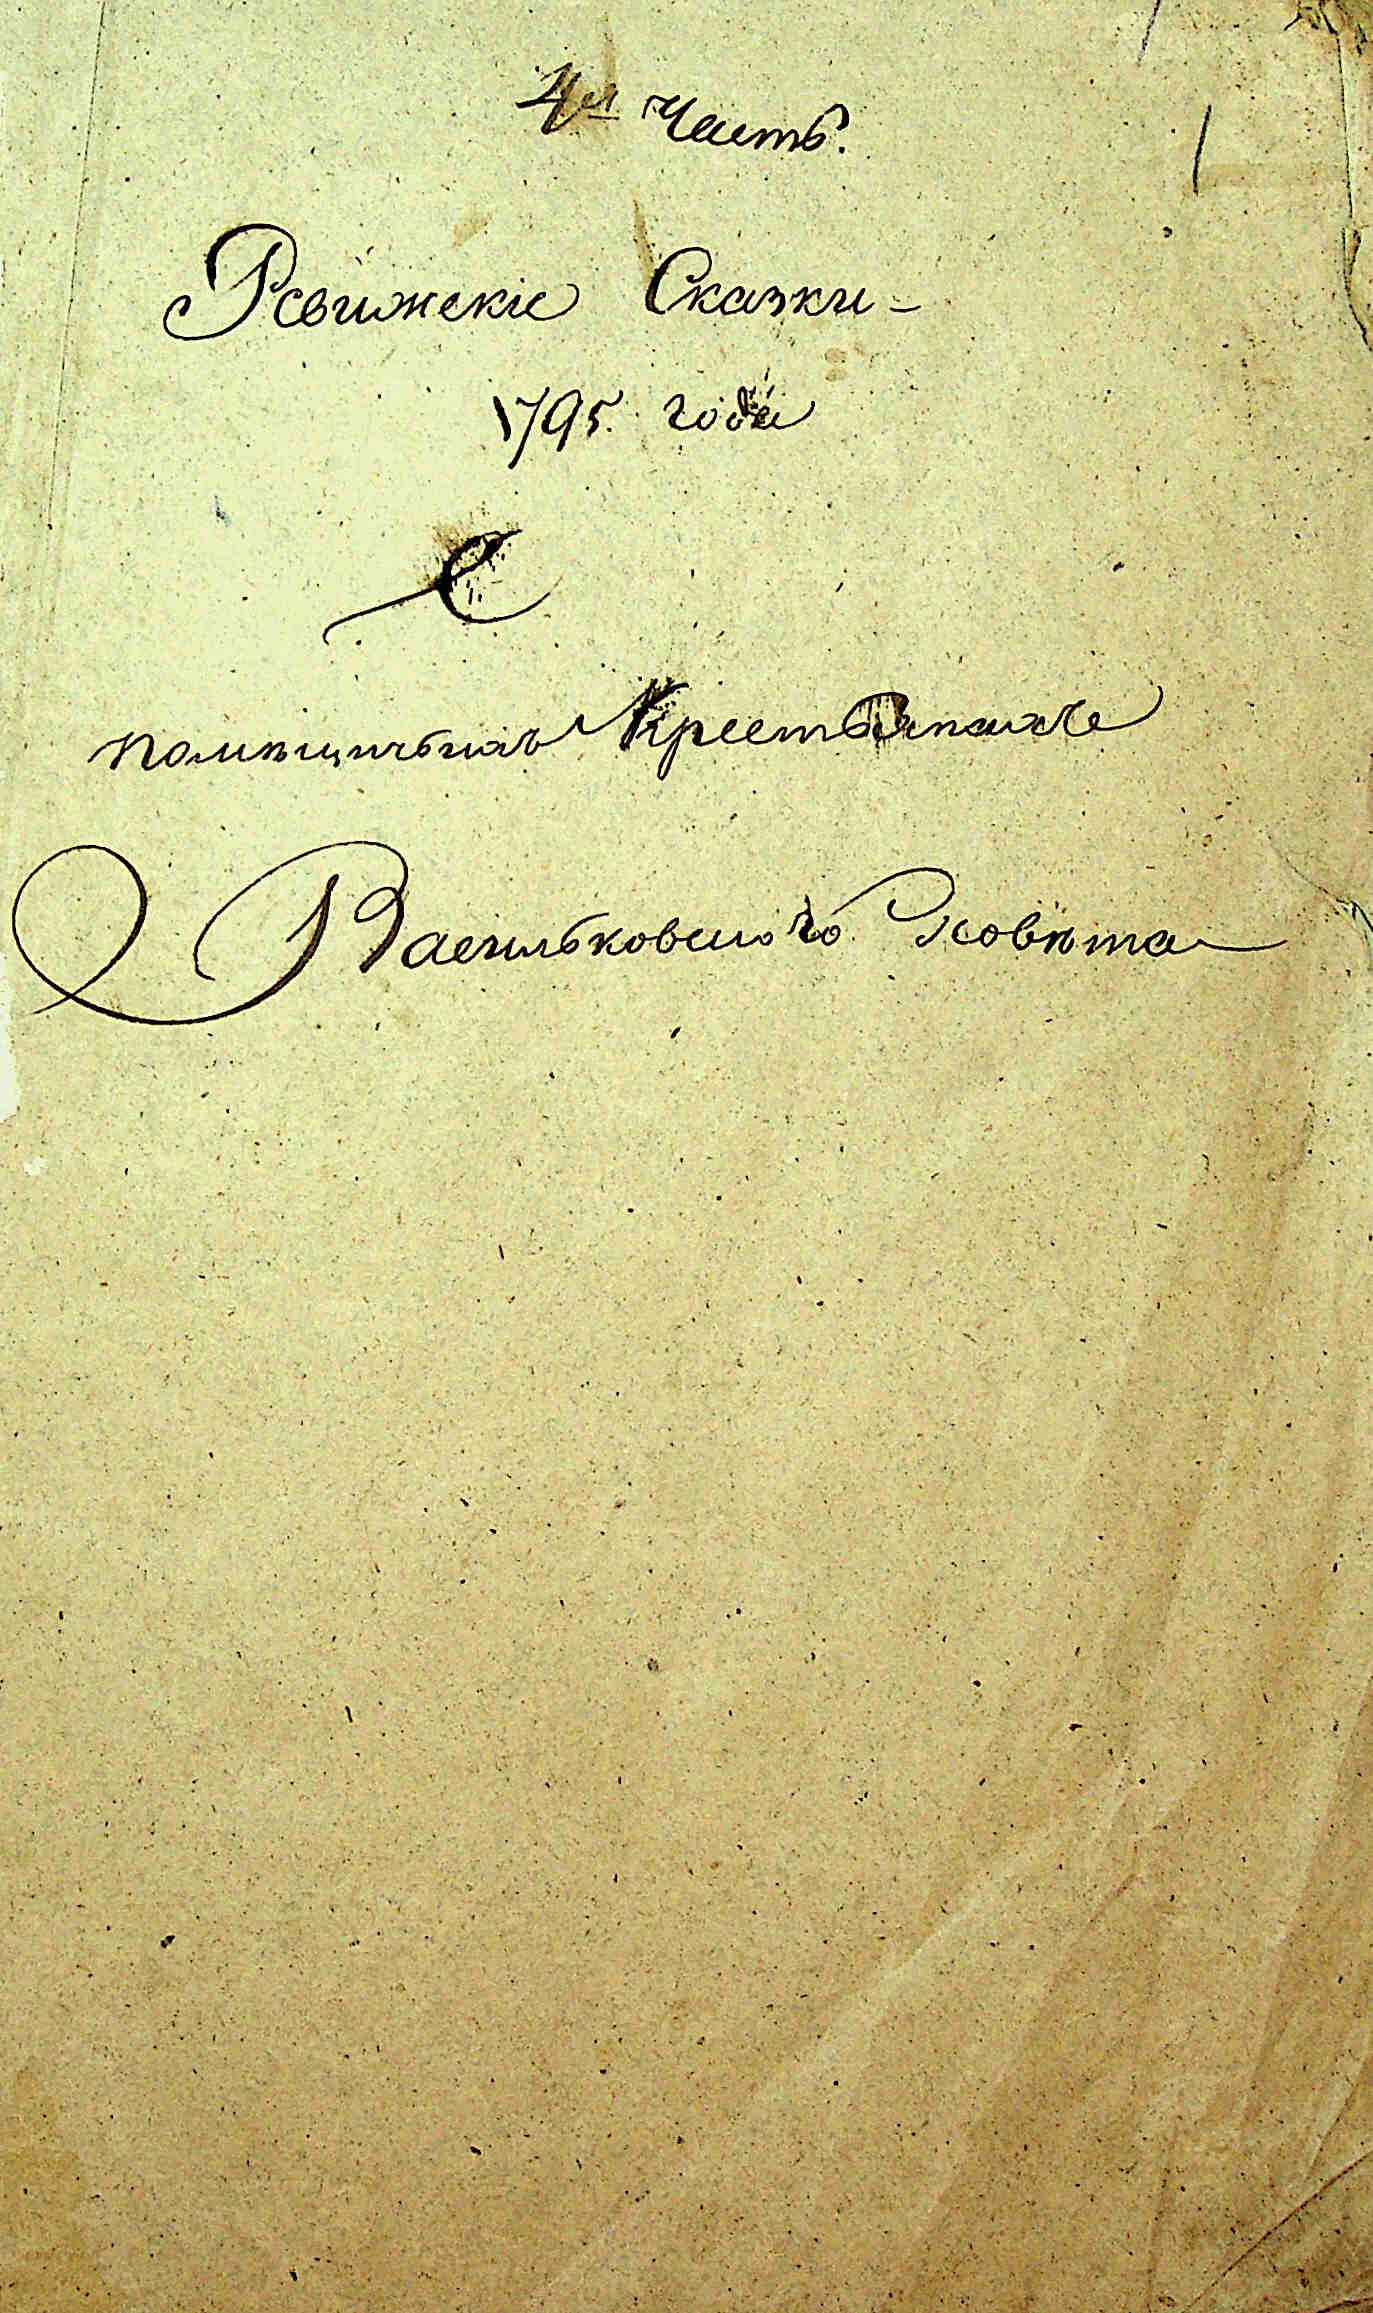 4я Часть.
Ревижскіе Сказки -
1795. года
О
помѣщичьихъ Крестьянахъ
Васильковского Повѣта